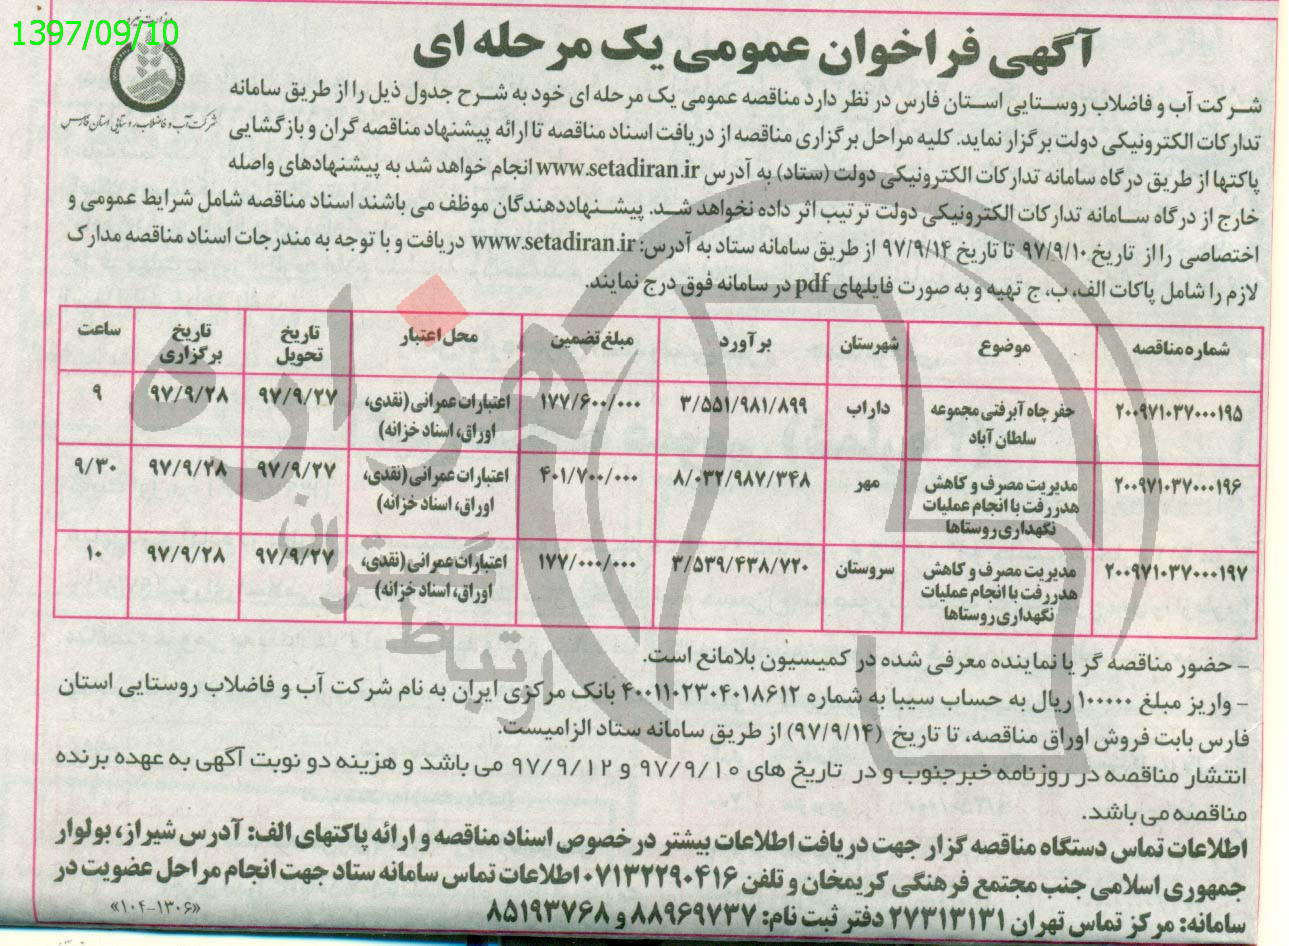 1397/09/10
وزارت نیرو
شرکت آب و فاضلاب روستایی استان فارس
آگهی فراخوان عمومی یک مرحله ای
شرکت آب و فاضلاب روستایی استان فارس در نظر دارد مناقصه عمومی یک مرحله ای خود به شرح جدول ذیل را از طریق سامانه
تدارکات الکترونیکی دولت برگزار نماید. کلیه مراحل برگزاری مناقصه از دریافت اسناد مناقصه تا ارائه پیشنهاد مناقصه گران و بازگشایی
پاکتها از طریق درگاه سامانه تدارکات الکترونیکی دولت (ستاد) به آدرس www.setadiran.ir انجام خواهد شد به پیشنهادهای واصله
خارج از درگاه سامانه تدارکات الکترونیکی دولت ترتیب اثر داده نخواهد شد. پیشنهاددهندگان موظف می باشند اسناد مناقصه شامل شرایط عمومی و
اختصاصی را از تاریخ ۹۷/۹/۱۰ تا تاریخ ۹۷/۹/۱۴ از طریق سامانه ستاد به آدرس: www.setadiran.ir دریافت و با توجه به مندرجات اسناد مناقصه مدارک
لازم را شامل پاکات الف، ب، ج تهیه و به صورت فایلهای pdf در سامانه فوق درج نمایند.
شماره مناقصه موضوع شهرستان برآورد مبلغ تضمین محل اعتبار تاریخ تحویل تاریخ برگزاری ساعت
۲۰۰۹۷۱۰۳۷۰۰۰۱۹۵ حفر چاه آبرفتی مجموعه سلطان آباد داراب ۳/۵۵۱/۹۸۱/۸۹۹ ۱۷۷/۶۰۰/۰۰۰ اعتبارات عمرانی (نقدی، اوراق، اسناد خزانه) ۹۷/۹/۲۷ ۹۷/۹/۲۸ ۹
۲۰۰۹۷۱۰۳۷۰۰۰۱۹۶ مدیریت مصرف و کاهش هدررفت با انجام عملیات نگهداری روستاها مهر ۸/۰۳۲/۹۸۷/۳۴۸ ۴۰۱/۷۰۰/۰۰۰ اعتبارات عمرانی (نقدی، اوراق، اسناد خزانه) ۹۷/۹/۲۷ ۹۷/۹/۲۸ ۹/۳۰
۲۰۰۹۷۱۰۳۷۰۰۰۱۹۷ مدیریت مصرف و کاهش هدررفت با انجام عملیات نگهداری روستاها سروستان ۳/۵۳۹/۴۳۸/۷۲۰ ۱۷۷/۰۰۰/۰۰۰ اعتبارات عمرانی (نقدی، اوراق، اسناد خزانه) ۹۷/۹/۲۷ ۹۷/۹/۲۸ ۱۰
هزاره
ارتباط گستران
- حضور مناقصه گر یا نماینده معرفی شده در کمیسیون بلامانع است.
- واریز مبلغ ۱۰۰۰۰۰ ریال به حساب سیبا به شماره ۴۰۰۱۱۰۲۳۰۴۰۱۸۶۱۲ بانک مرکزی ایران به نام شرکت آب و فاضلاب روستایی استان
فارس بابت فروش اوراق مناقصه، تا تاریخ (۹۷/۹/۱۴) از طریق سامانه ستاد الزامیست.
انتشار مناقصه در روزنامه خبرجنوب و در تاریخ های ۹۷/۹/۱۰ و ۹۷/۹/۱۲ می باشد و هزینه دو نوبت آگهی به عهده برنده
مناقصه می باشد.
اطلاعات تماس دستگاه مناقصه گزار جهت دریافت اطلاعات بیشتر در خصوص اسناد مناقصه و ارائه پاکتهای الف: آدرس شیراز، بولوار
جمهوری اسلامی جنب مجتمع فرهنگی کریمخان و تلفن ۰۷۱۳۲۲۹۰۴۱۶ اطلاعات تماس سامانه ستاد جهت انجام مراحل عضویت در
سامانه: مرکز تماس تهران ۲۷۳۱۳۱۳۱ دفتر ثبت نام: ۸۸۹۶۹۷۳۷ و ۸۵۱۹۳۷۶۸
«۱۰۴-۱۳۰۶»